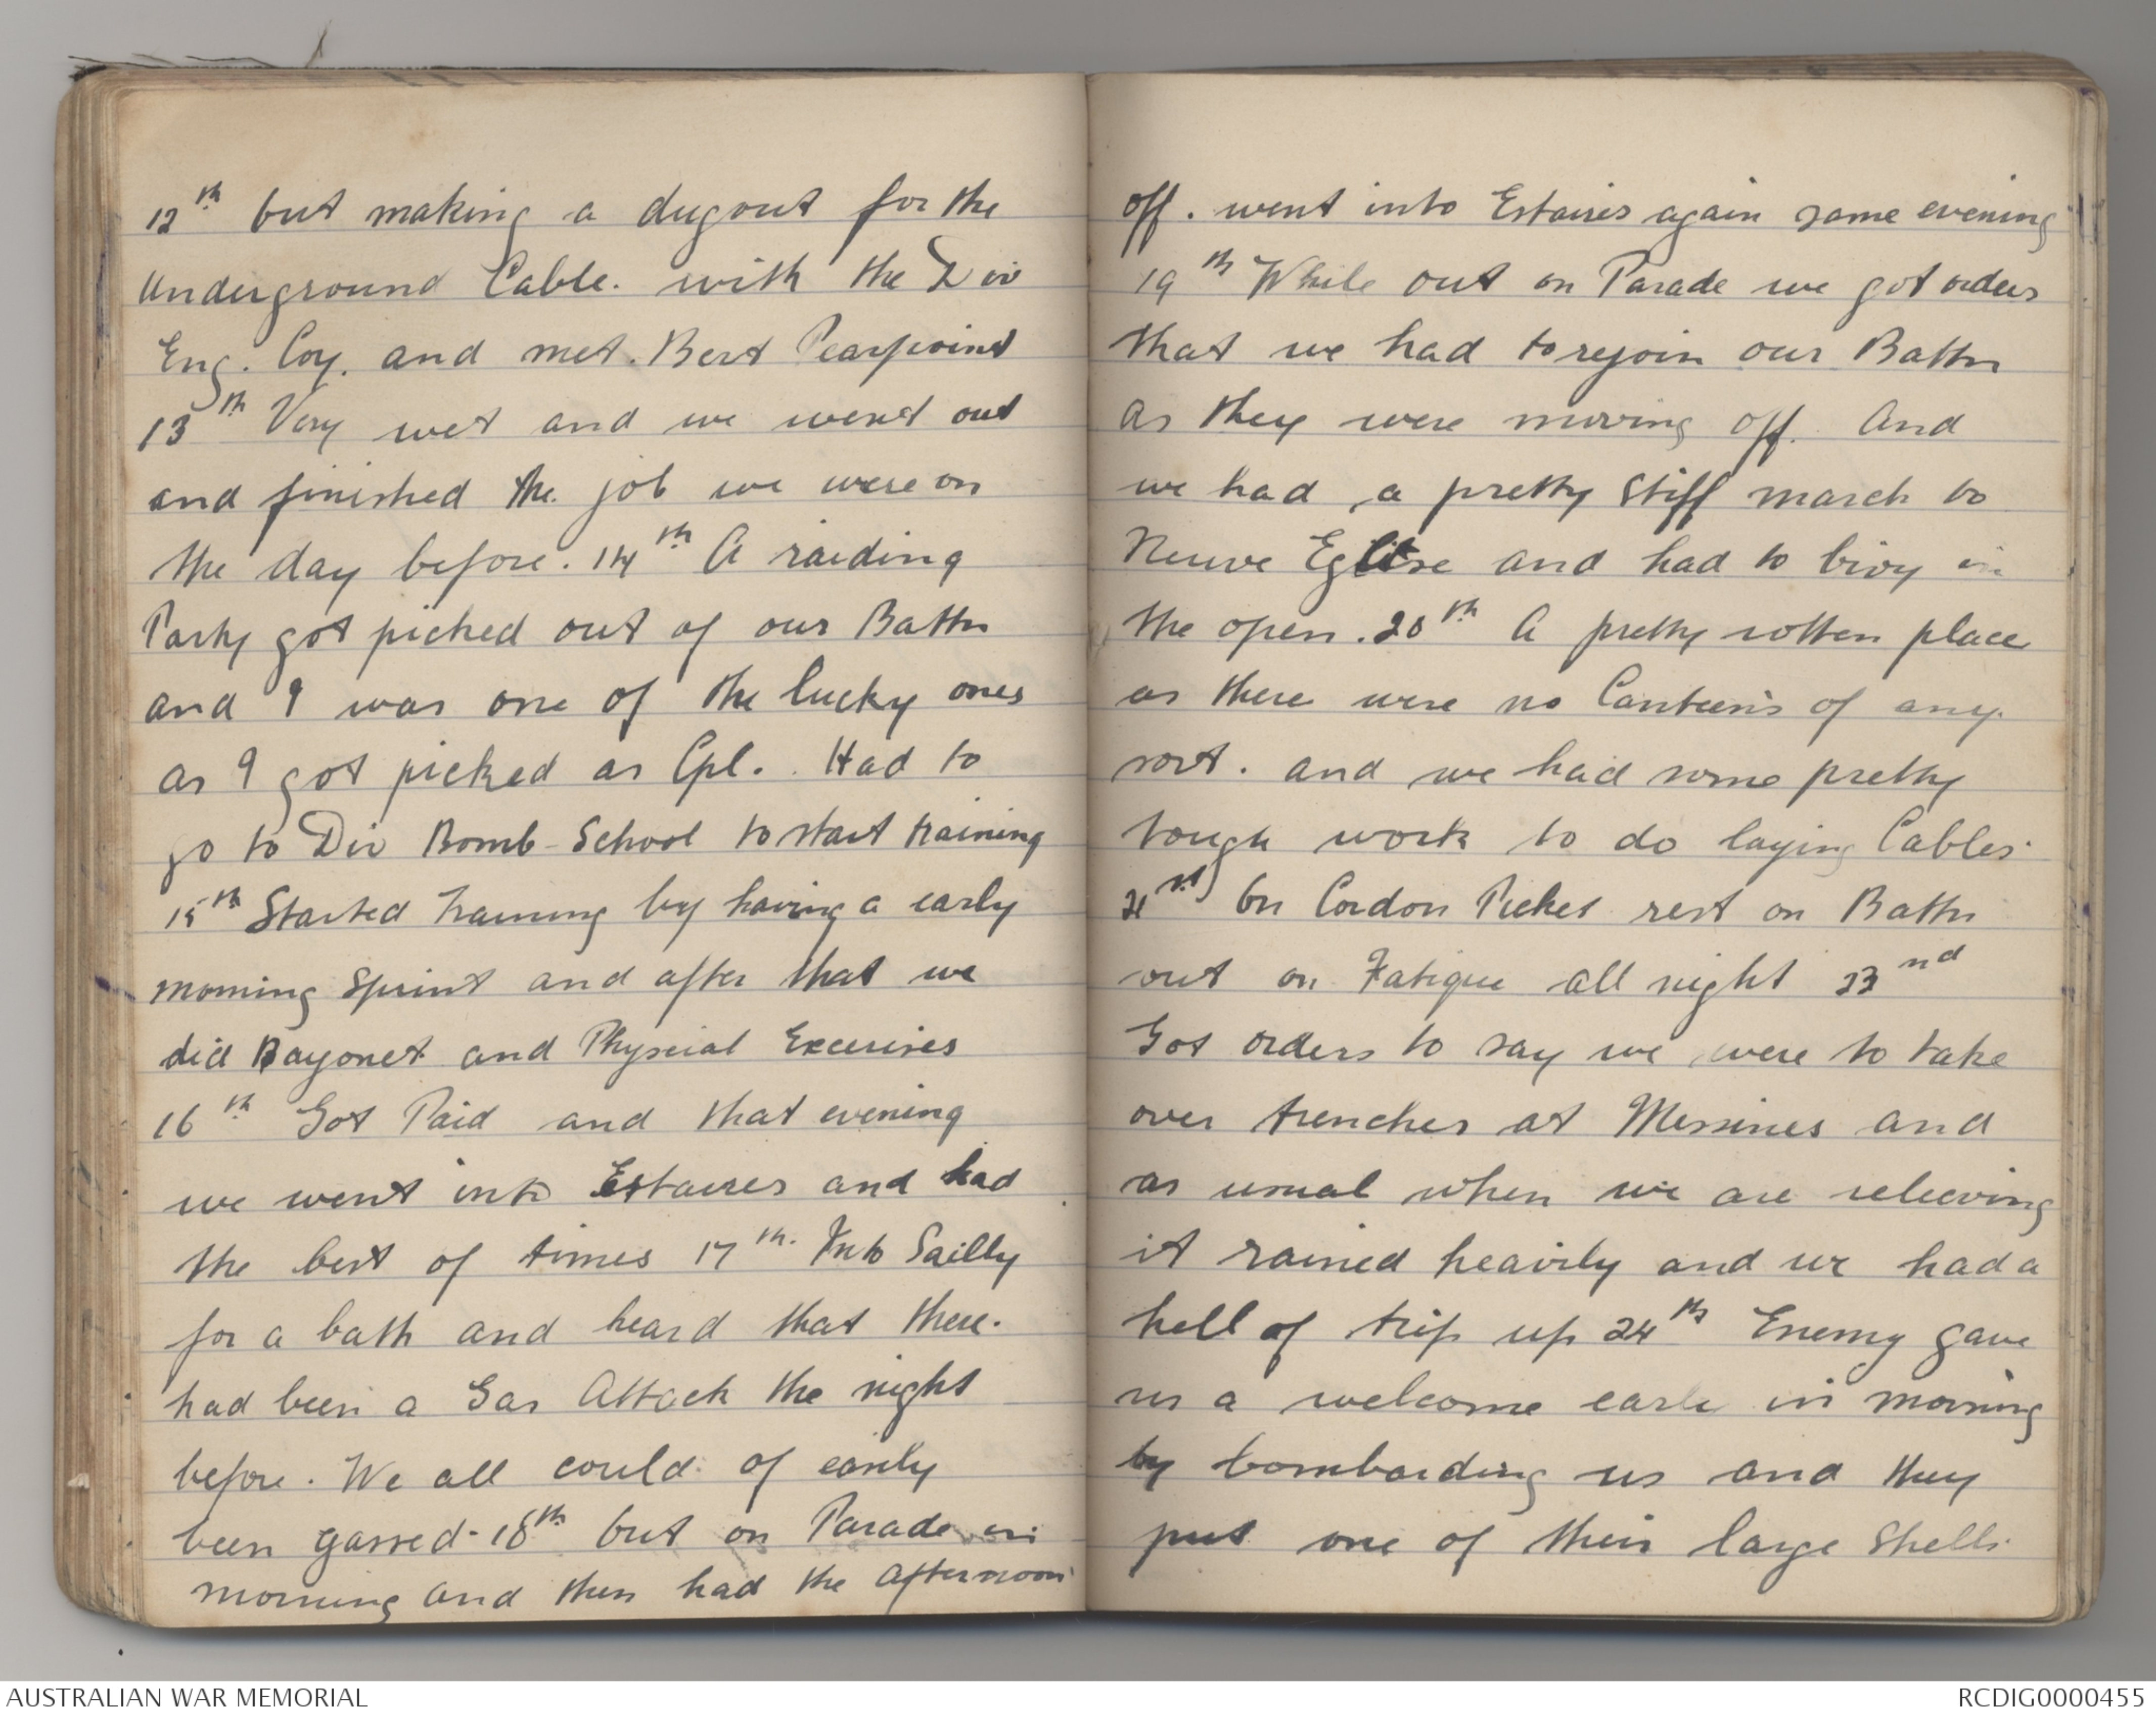 12th but making a dugout for the
Underground Cable. with the Div
Eng. Coy. and met. Bert Pearpoint
13th Very wet and we went out
and finished the job we were on
the day before. 14th A raiding
Party got picked out of our Battn
and I was one of the lucky ones
as I got picked as Cpl. Had to
go to Div Bomb-School to start training
15th Started training by having a early
morning sprint and after that we
did Bayonet and Physcial Excerises
16th Got Paid and that evening
we went into Estaires and had
the best of times 17th. Into Sailly
for a bath and heard that there.
had been a Gas Attack the night
before. We all could of easily
been gassed - 18th but on Parade in
morning and then had the afternoon
off. went into Estaires again same evening
19th While out on Parade we got orders
that we had to rejoin our Battn
as they were moving off. And
we had a pretty stiff march to
Neuve Eglise and had to bivy in
the open. 20th A pretty rotten place
as there were no Canteens of any
sort. and we had some pretty
tough work to do laying Cables.
21st On Cordon Picket rest on Battn
out on Fatigue all night 23nd
Got orders to say we were to take
over trenches at Messines and
as usual when we are releeving
it rained heavily and we had a
hell of trip up 24th Enemy gave
us a welcome early in morning
by bombarding us and they
put one of their large shells.
AUSTRALIAN WAR MEMORIAL
RCDIG0000455